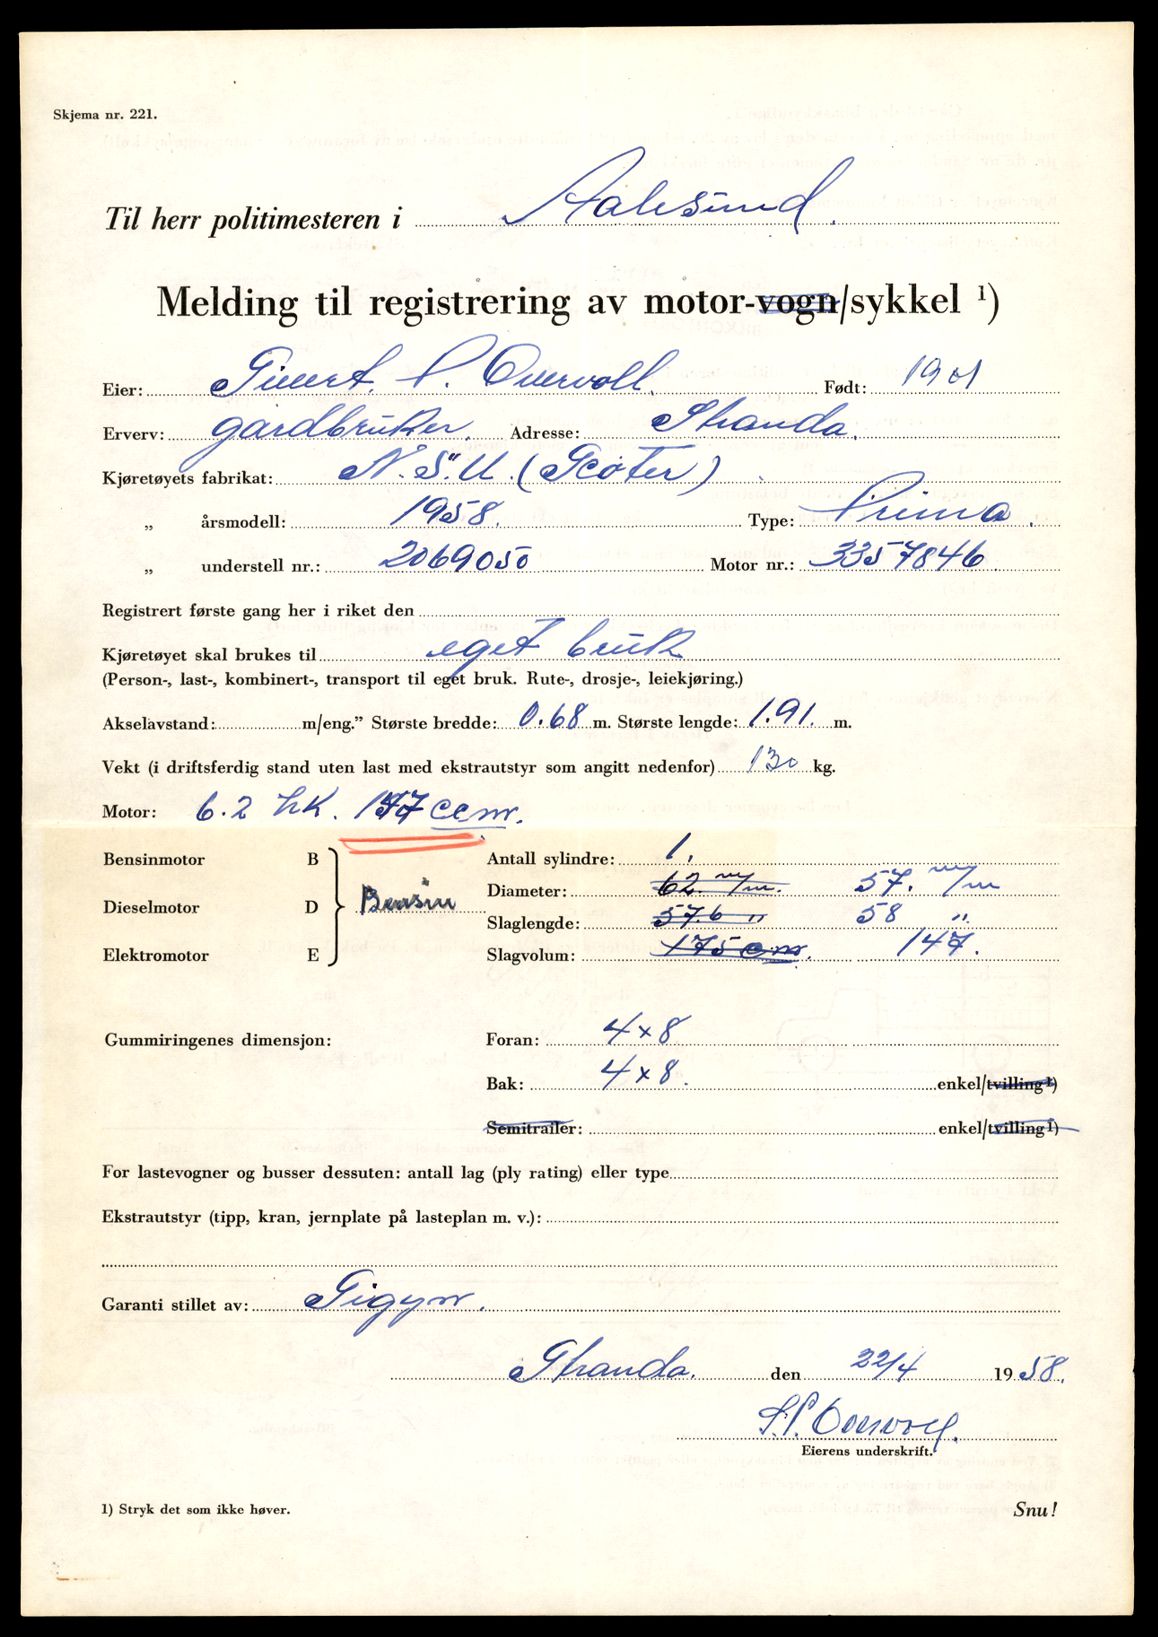 Skjema nr. 221.
Til herr politimesteren i Aalesund.
Melding til registrering av motor-vogn/sykkel ¹)
Eier: Sivert P. Overvoll. Født: 1901
Erverv: gårdbruker. Adresse: Stranda.
Kjøretøyets fabrikat: N.S.U. (Scoter)
„ årsmodell: 1958. Type: Prima.
„ understell nr.: 2069050 Motor nr.: 3357846
Registrert første gang her i riket den
Kjøretøyet skal brukes til eget bruk
(Person-, last-, kombinert-, transport til eget bruk. Rute-, drosje-, leiekjøring.)
Akselavstand: m/eng.” Største bredde: 0.68 m. Største lengde: 1.91. m.
Vekt (i driftsferdig stand uten last med ekstrautstyr som angitt nedenfor) 130 kg.
Motor: 6.2 hk. 147 ccm.
Bensinmotor B Antall sylindre: 1.
Diameter: 62 m/m. 57. m/m
Dieselmotor D Bensin
Slaglengde: 57.6 " 58 "
Elektromotor E Slagvolum: 175 cm. 147.
Gummiringenes dimensjon: Foran: 4 x 8
Bak: 4 x 8. enkel/tvilling¹)
Semitrailer: enkel/tvilling¹)
For lastevogner og busser dessuten: antall lag (ply rating) eller type
Ekstrautstyr (tipp, kran, jernplate på lasteplan m. v.):
Garanti stillet av:
Stranda. den 22/4 1958.
S.P. Overvoll.
Eierens underskrift.
1) Stryk det som ikke høver.
Snu!